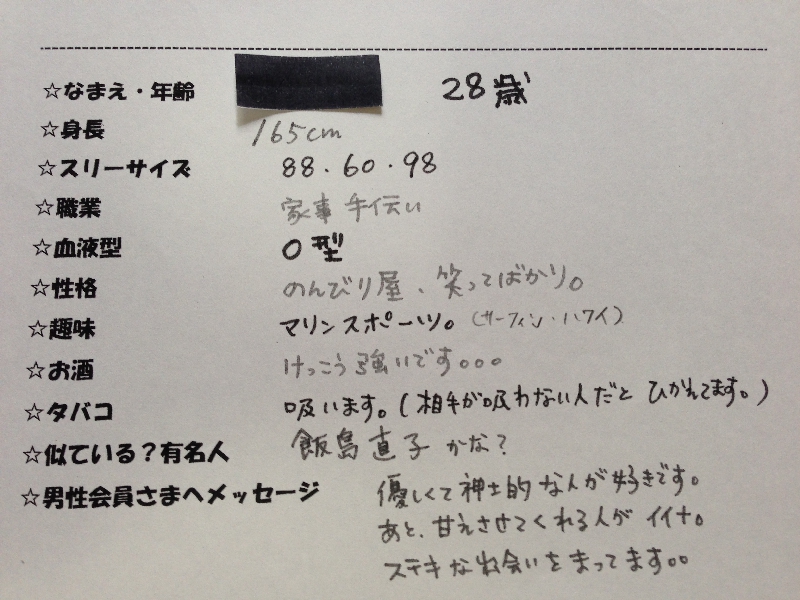 ☆なまえ・年齢 28歳
☆身長 165cm
☆スリーサイズ 88.60.98
☆職業 家事手伝い
☆血液型 O型
☆性格 のんびり屋、笑ってばかり。
☆趣味 マリンスポーツ。(サーフィン・ハワイ)
☆お酒 けっこう強いです。。。
☆タバコ 吸います。(相手が吸わない人だと ひかえてます。)
☆似ている?有名人 飯島直子かな?
☆男性会員さまへメッセージ 優しくて紳士的な人が好きです。
あと、甘えさせてくれる人がイイナ。
ステキな出会いをまってます。。